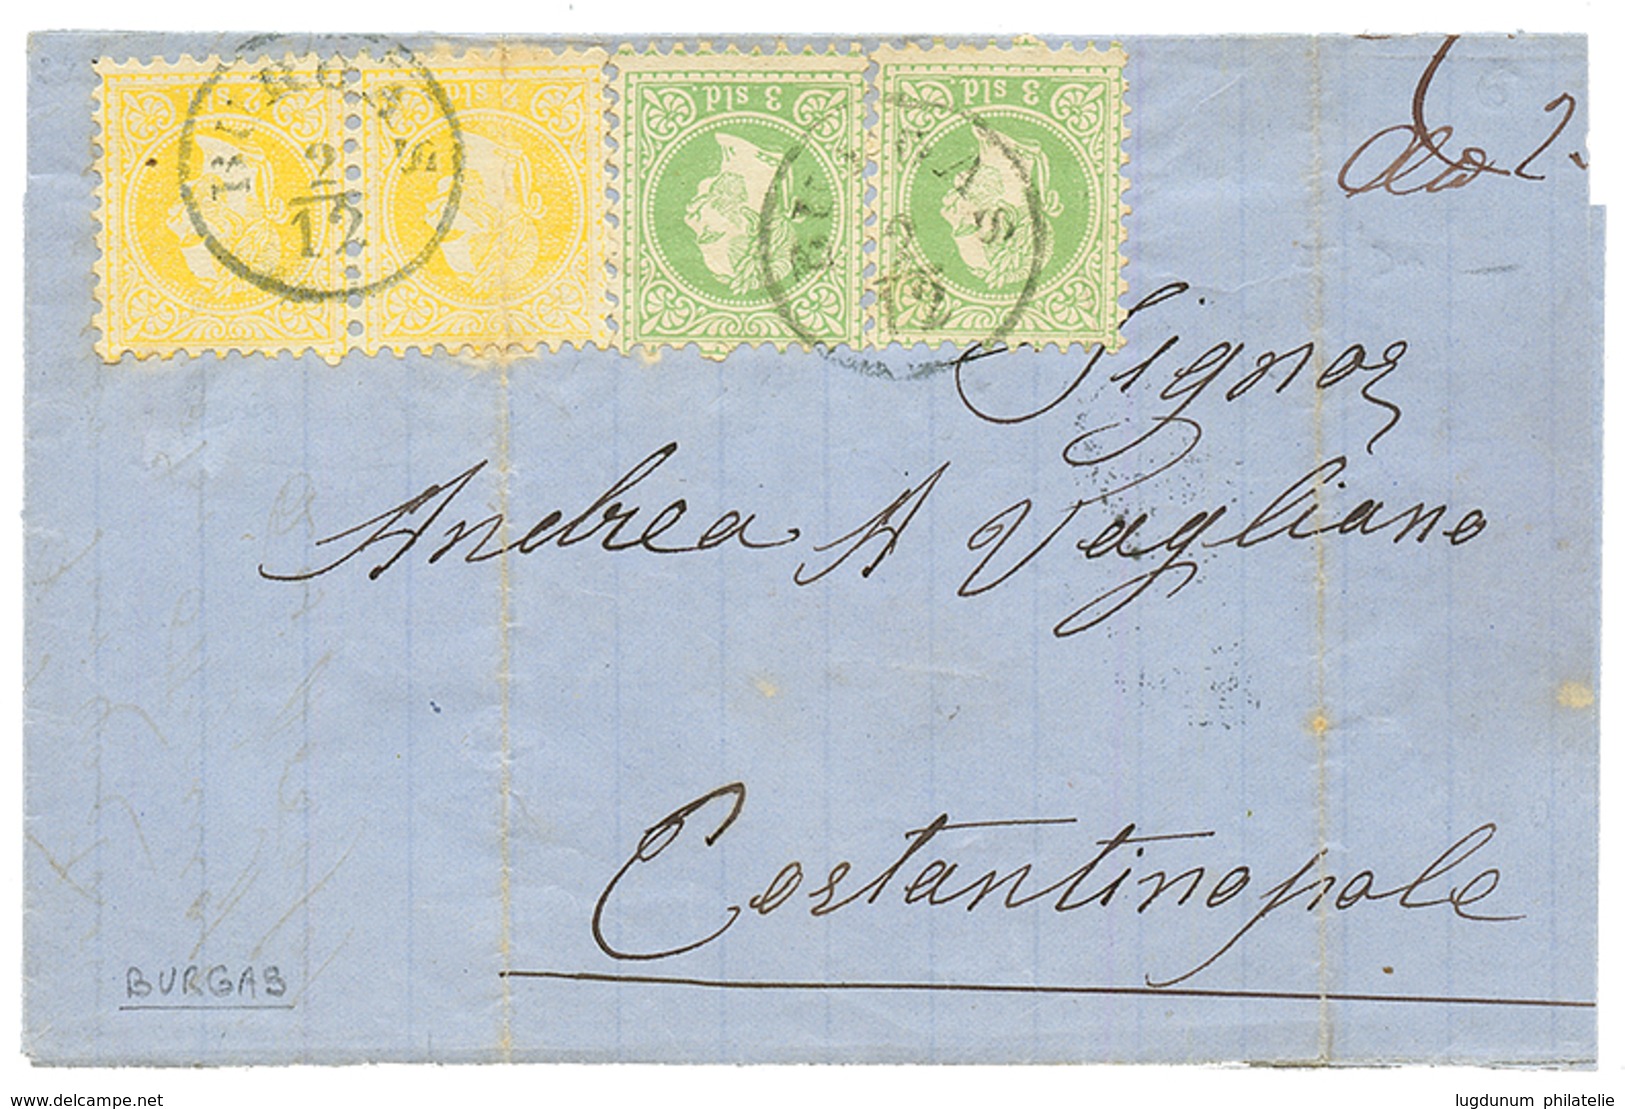 2 sld.
2 sld.
3 sld.
3 sld.
BURGAS
2
12
BURGAS
2
12
Signor
Andrea A Vagliano
Costantinopole
BURGAS
www.delcampe.net
lugdunum philatelie